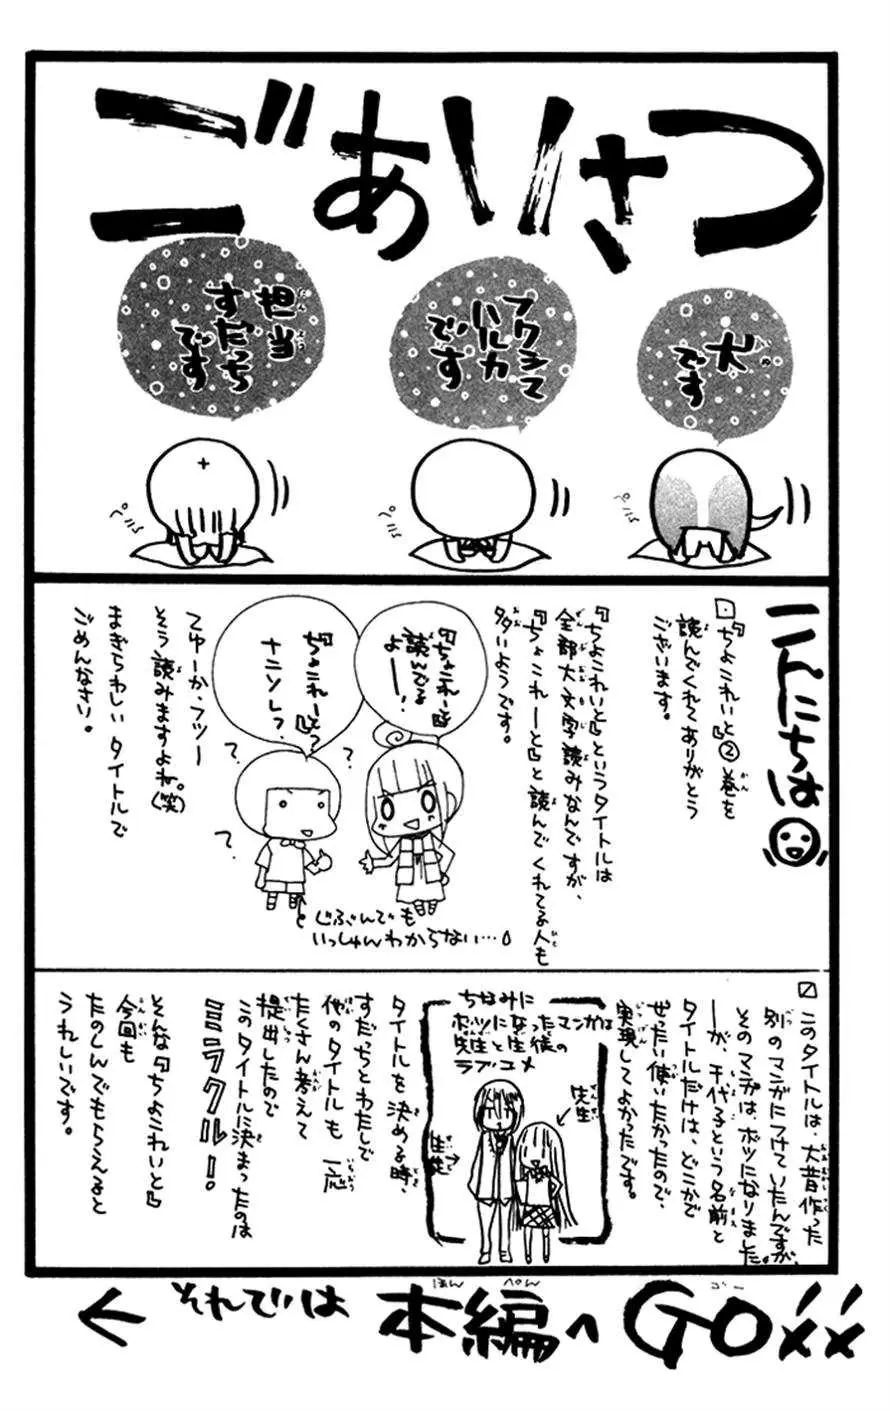 ごあいさつ
犬です
フクシマ
ハルカ
です
担当
すだっち
です
ペこ
ペこ
ペこ
こんにちは
『ちよこれいと』②巻を
読んでくれてありがとう
ございます。
『ちよこれいと』というタイトルは
全部大文字読みなんですが、
『ちょこれーと』と読んでくれてる人も
多いようです。
『ちょこれーと』
読んでる
よー!
『ちょこれーと』?
ナニソレ?
じぶんでも
いっしゅんわからない…
てゆーか、フツー
そう読みますよね。
(笑)
まぎらわしいタイトルで
ごめんなさい。
このタイトルは、大昔作った
別のマンガにつけていたんですが、
そのマンガは、ボツになりました。
ーが、千代子という名前と
タイトルだけは、どこかで
ぜったい使いたかったので、
実現してよかったです。
ちなみに
ボツになったマンガは
先生と生徒の
ラブコメ
先生
生徒
タイトルを決める時、
すだっちとわたしで
他のタイトルも一応
たくさん考えて
提出したので
このタイトルに決まったのは
ミラクルー!
そんな『ちよこれいと』
今回も
たのしんでもらえると
うれしいです。
それでは本編へGO